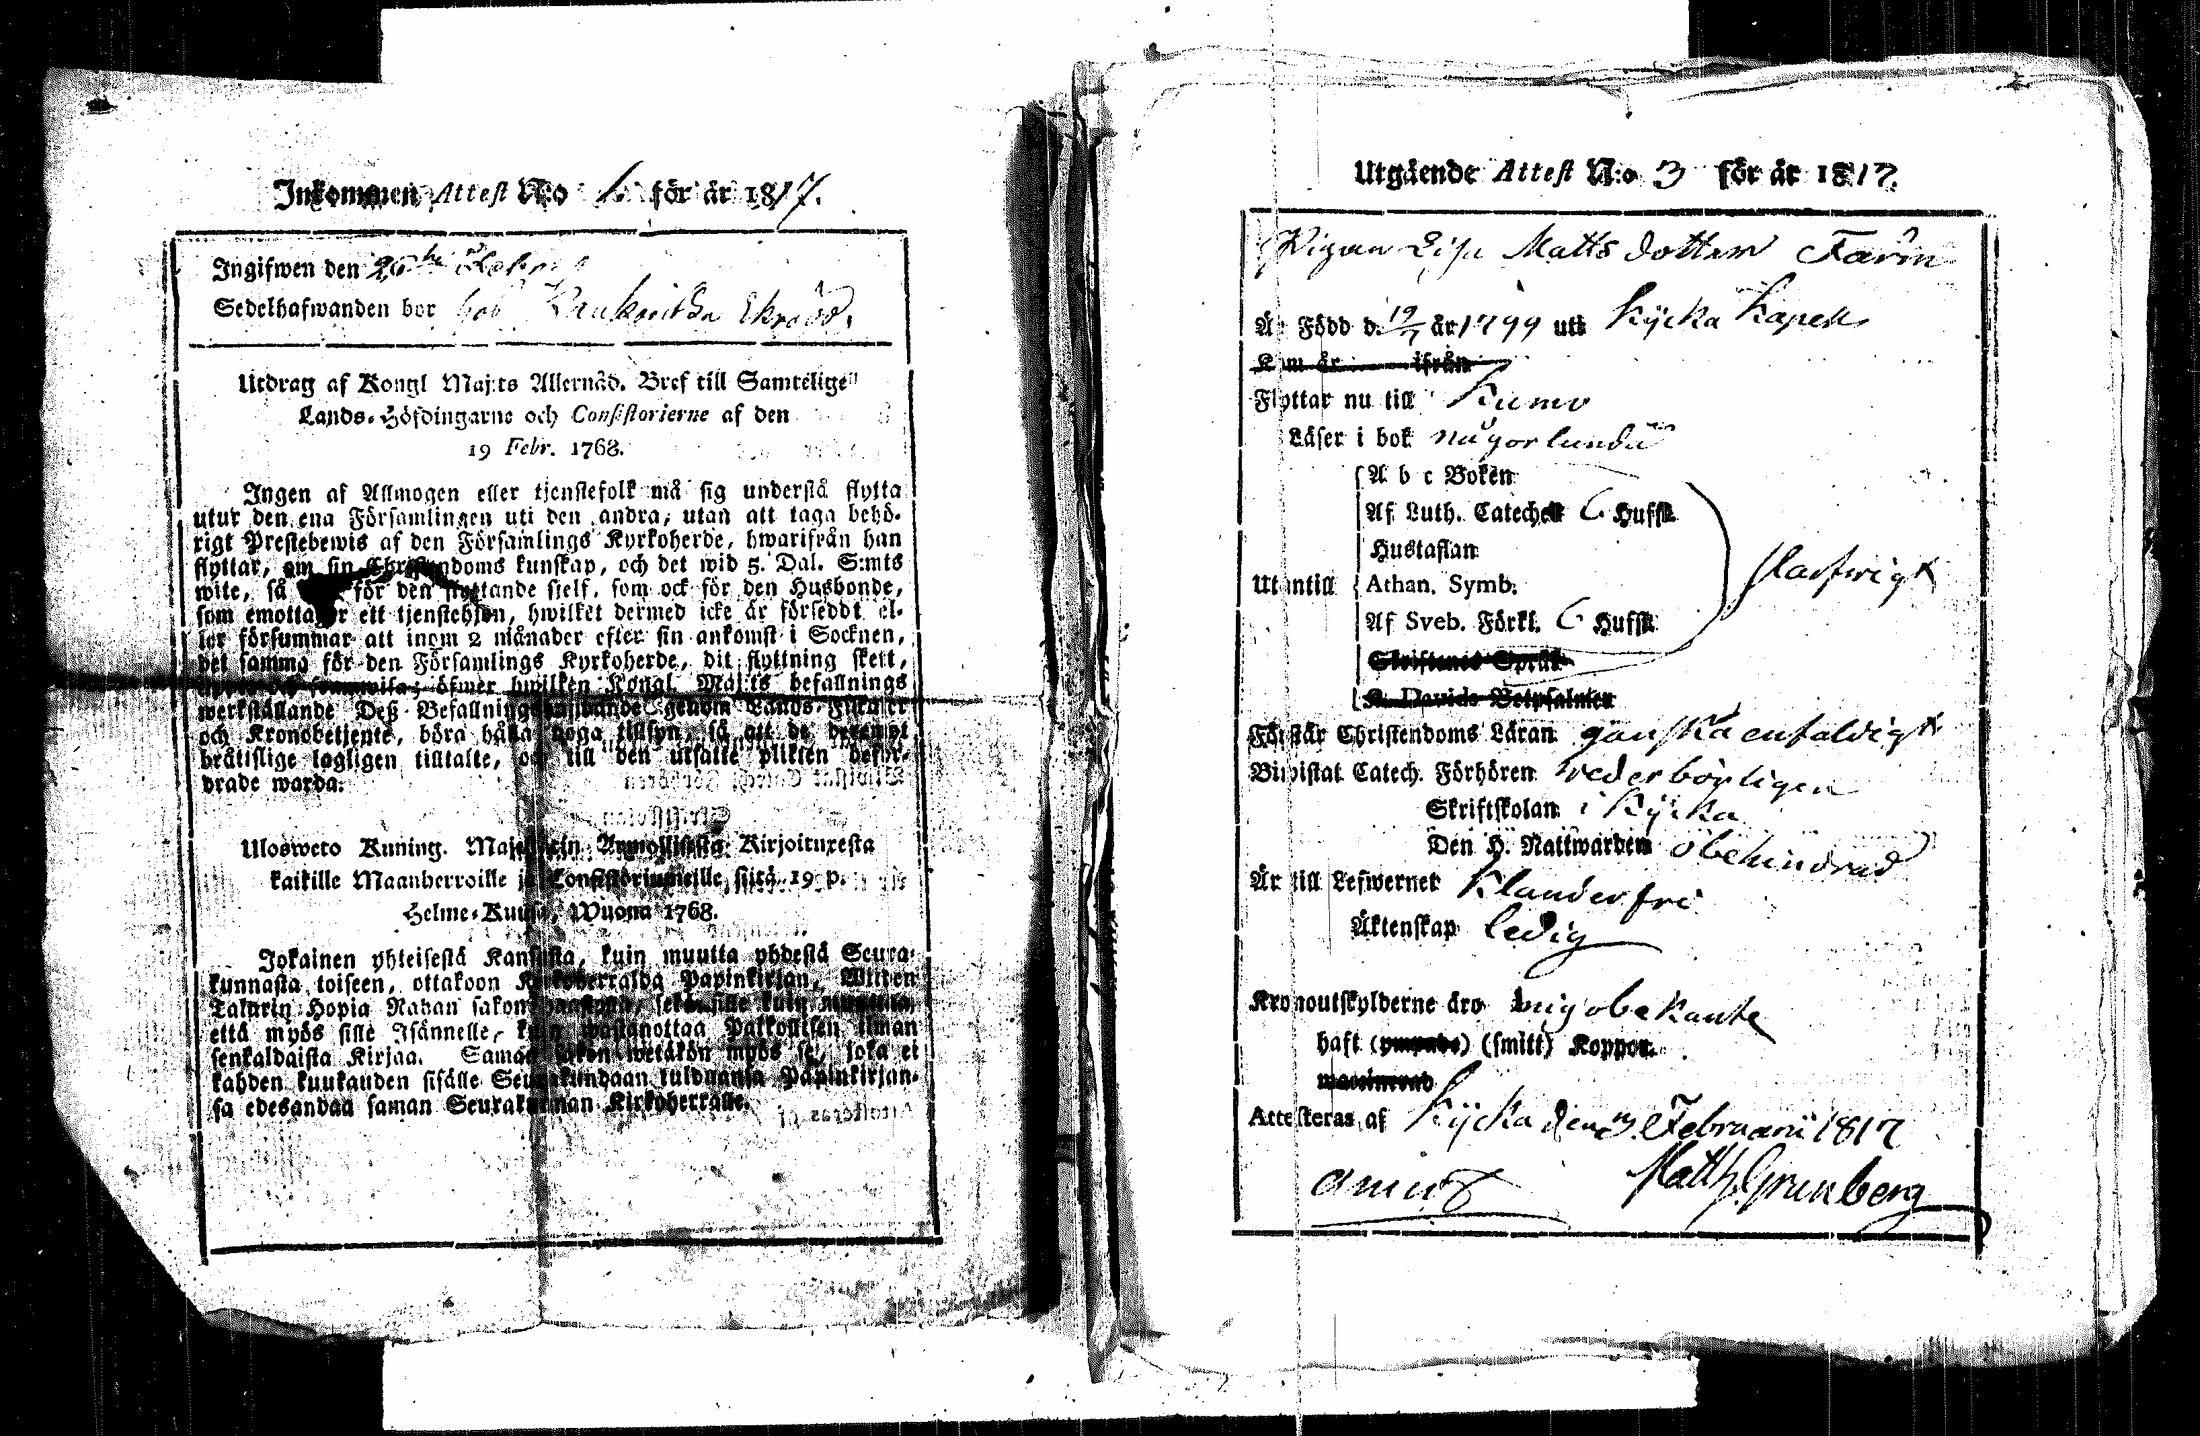 Inkommen Attest N:o 6 för år 1817.
Ingifwen den 26te Febr.
Sedelhafwanden bor hos
Utdrag af Kongl Maj:ts Allernåd. Bref till Samtelige
Lands-Höfdingarne och Consistorierne af den
19 Febr. 1768.
Ingen af Allmogen eller tjenstefolk må sig understå flytta
utur den ena Församlingen uti den andra, utan att taga behö-
rigt Prestebewis af den Församlings Kyrkoherde, hwarifrån han
flyttar, om sin Christendoms kunskap, och det wid 5. Dal. S:mts
wite, så för den flyttande sielf, som ock för den Husbonde,
som emottager ett tjenstehjon, hwilket dermed icke är försedt el-
ler försummar att inom 2 månader efter sin ankomst i Socknen,
det samma för den Församlings Kyrkoherde, dit flyttning skett,
öfwer hwilken Kongl. Maj:ts befallnings
werkställande Deß Befallningshafwande genom Lands-Fiskaler
och Kronobetjente, böra hålla noga tillsyn, så att de
bråttslige lagligen tilltalte, och till den utsatte plikten befor-
drade warda.
Ulosweto Kuning. Majestetin Armollisesta Kirjoituxesta
kaikille Maanherroille ja Consistoriumeille, siitä 19 p.
Helme-Kuusa, Wuona 1768.
Jokainen yhteisestä Kansasta, kuin muutta yhdestä Seura-
kunnasta toiseen, ottakoon Kirkoherralda Papinkirjan, Wijden
Talarin Hopia Rahan sakon haastolla, sekä sille kuin muuttaa,
että myös sille Isännelle, kuin wastanottaa Palkollisen ilman
senkaldaista Kirjaa. Saman sakon wetäkön myös se, joka ei
kahden kuukauden sisälle Seurakundaan tulduansa Papinkirjan-
sa edesandaa saman Seurakunnan Kirkoherralle.
Utgående Attest N:o 3 för år 1817.
Pigan Lisa Matts dotter Farin
Är Född d. 19/7 år 1799 uti Kjicka Kapell
Kom år ifrån
Flyttar nu till Kumo
Läser i bok någorlunda
A b c Boken
Af Luth. Catechet 6 Hufst.
Hustaflan
Utantill Athan. Symb. slarfwigt
Af Sveb. Förkl. 6 Hufst.
Skriftenes Språk
K. Davids Botpsalmer
Förstår Christendoms Läran ganska enfaldigt
Biwistat Catech. Förhören wederbörligen
Skriftskolan i Kjicka
Den H. Nattwarden obehindrad
Är till Lefwernet Klanderfri
Äktenskap ledig
Kronoutskylderne äro mig obekante
haft (ympade) (smitt) Koppor.
waccinerad
Attesteras af Kjicka den 3 Februarii 1817
Matth. Grunberg